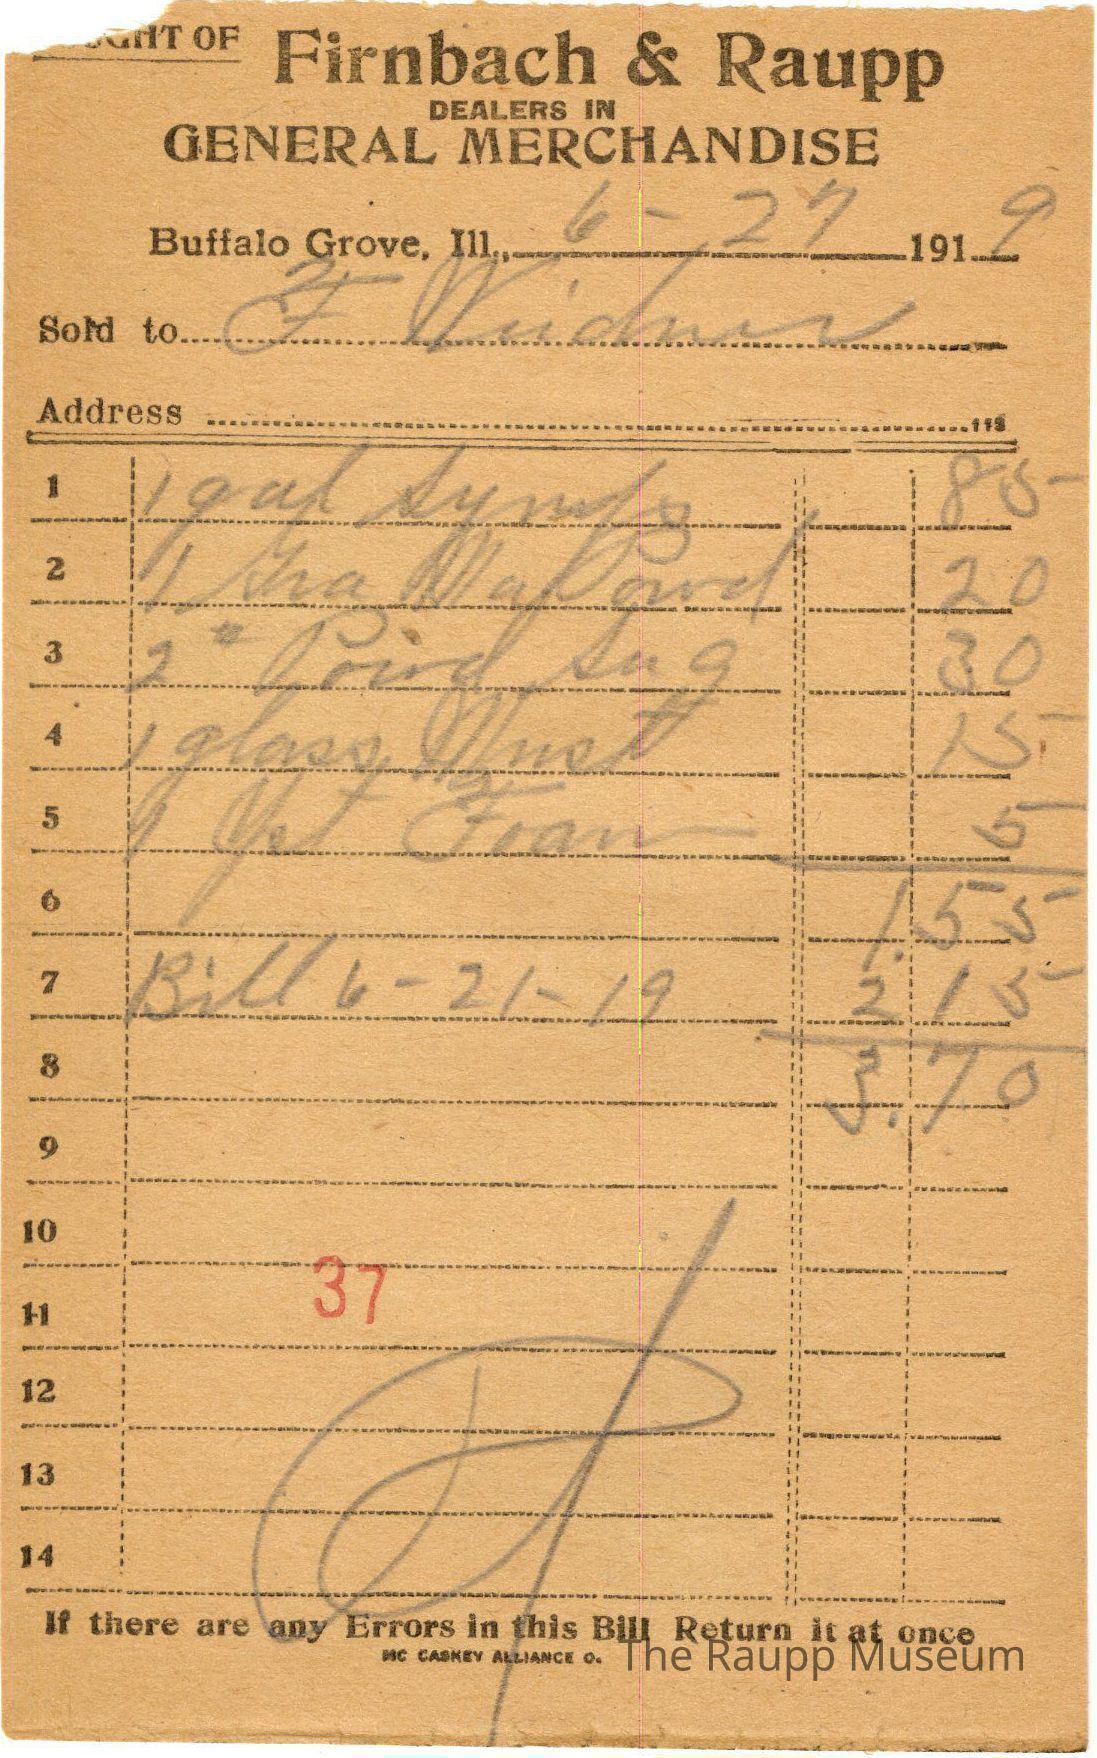 OUGHT OF Firnbach & Raupp
DEALERS IN
GENERAL MERCHANDISE
Buffalo Grove, Ill., 6-27 1919
Sold to F Weidner
Address
1 1 gal Syrup 85
2 1 Powd 20
3 2 " Powd Sug 30
4 1 glass Must 15
5 1 Yst Foam 5
6 1.55
7 Bill 6-21-19 2 15
8 3.70
9
10
37
11
12
13
14
If there are any Errors in this Bill Return it at once
MC CASKEY ALLIANCE O.
The Raupp Museum